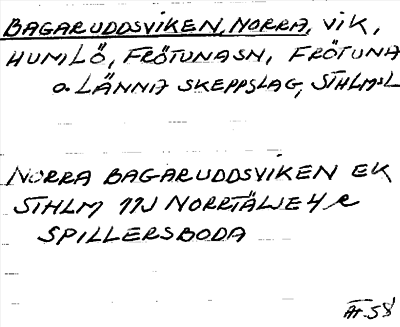 BAGARUDDSVIKEN, NORRA, VIK,
HUMLÖ, FRÖTUNASN, FRÖTUNA
o. LÄNNA SKEPPSLAG, STHLMSL
NORRA BAGARUDDSVIKEN EK
STHLM 11J NORRTÄLJE 4 
SPILLERSBODA
58